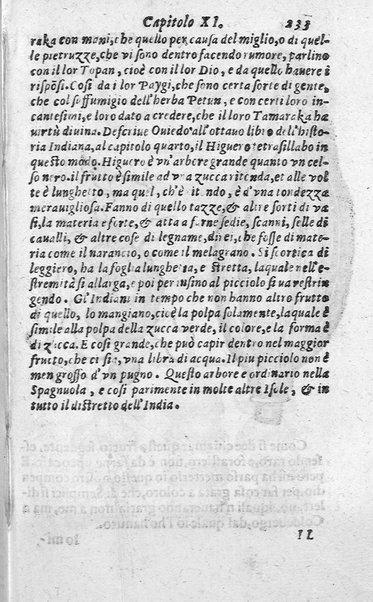 Capitolo XI. 233
raka con mani, che quello per causa del miglio, o di quel-
le pietruzze, che vi sono dentro facendo rumore, parlino
con il lor Topan, cioè con il lor Dio, e da quello hauere i
risposi. Cosi da i lor Paygi, che sono certa sorte di gente,
che col soffumigio dell'herba Petun, e con certi loro in-
cantesimi, e loro dato a credere, che il loro Tamaraka ha
uirtù diuina. Descriue Ouiedo all'ottauo libro dell'histo
ria Indiana, al capitolo quarto, il Higuero tetrasillabo in
questo modo. Higuero è vn'arbore grande quanto vn cel-
so nero. il frutto è simile ad vna zucca ritonda, et alle vol
te è lunghetto, ma quel, ch'è itondo, è d'vna tondezza
merauigliosa. Fanno di quello tazze, & altre sorti di va
si, la materia e forte, & atta a farne sedie, scanni, selle di
caualli, & altre cose di legname, direi, che fosse di mate-
ria come il narancio, o come il melagrano. Si scortica di
leggiero, ha la foglia lunghetta, e stretta, laquale nell'e-
stremità si allarga, e poi per insino al picciolo si ua restrin
gendo. Gl'Indiani in tempo che non hanno altro frutto
di quello, lo mangiano, cioè la polpa solamente, laquale è
simile alla polpa della zucca verde, il colore, e la forma è
di zucca. E cosi grande, che può capir dentro nel maggior
frutto, che ci sia, vna libra di acqua. Il piu picciolo non è
men grosso d'vn pugno. Questo arbore e ordinario nella
Spagnuola, e cosi parimente in molte altre Isole, & in
tutto il distretto dell'India.
IL